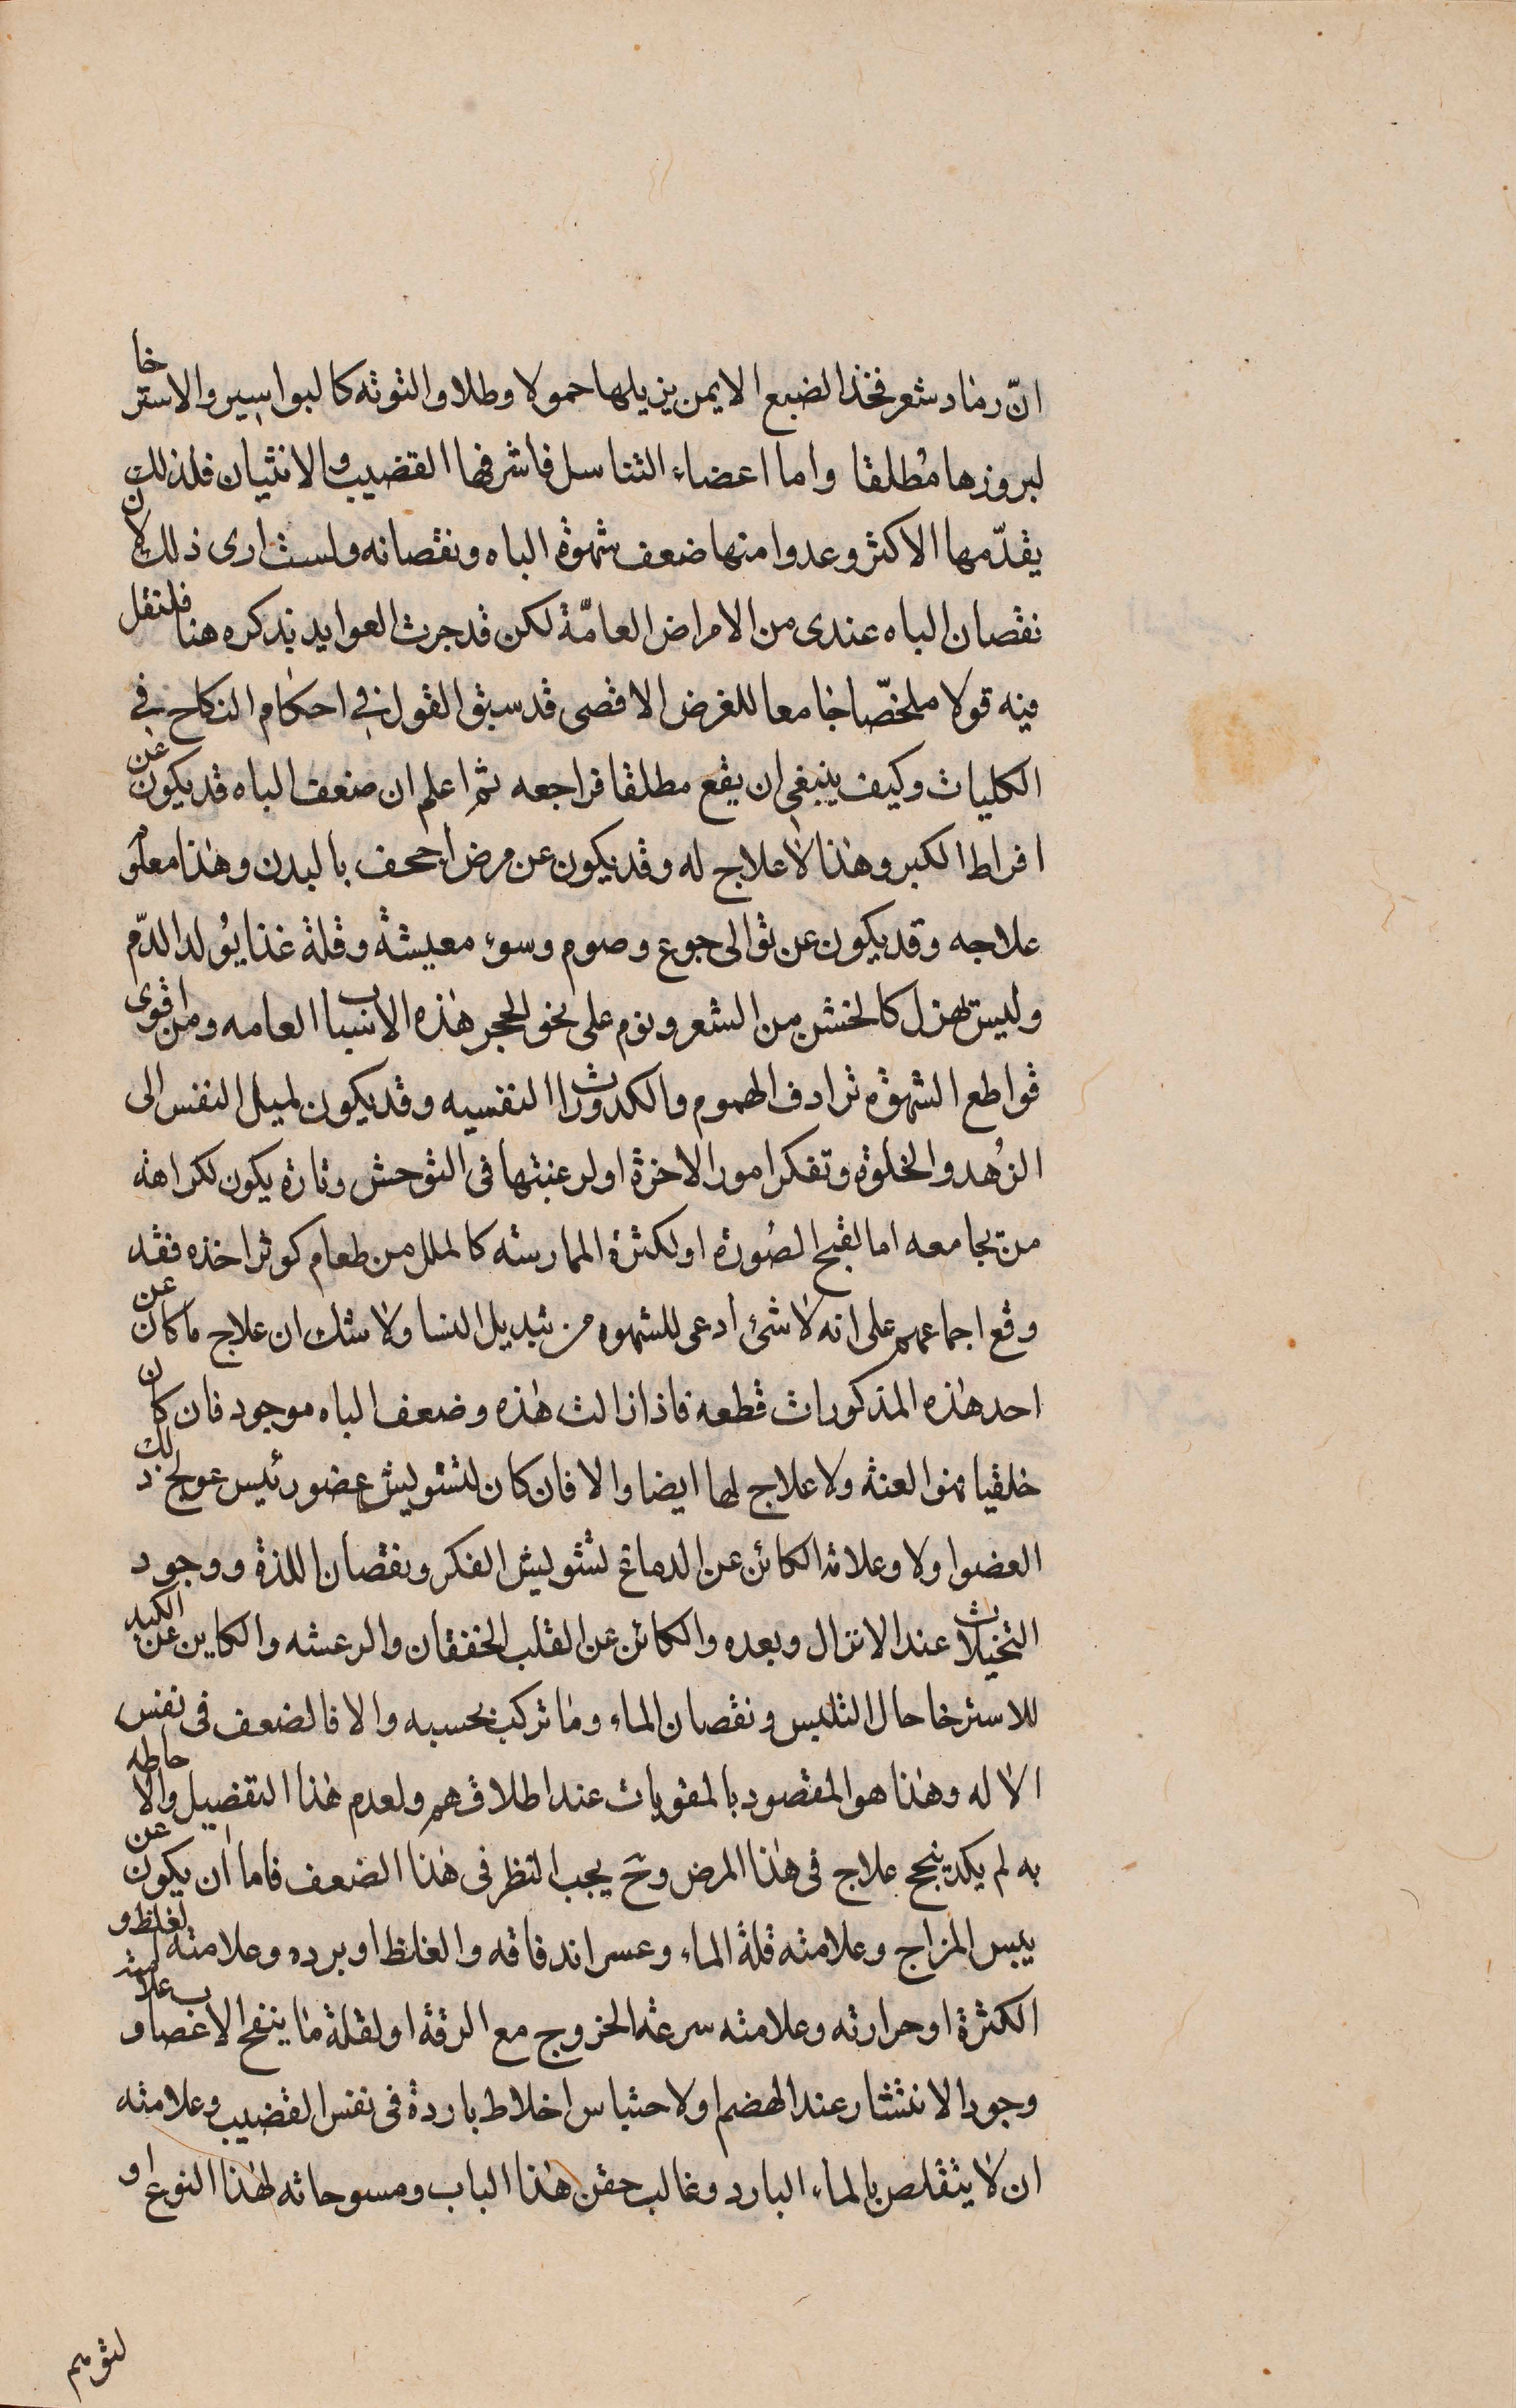 انّ رماد شعر فخذ الضبع الايمن يزيلها حمولا وطلا والتوته كالبواسير والاسترخا
لبروزها مُطلقا واما اعضاء التناسل فاشرفها القضيب والانثيان فلذلك
يقدّمها الاكثر وعدوا منها ضعف شهوة الباه ونقصانه ولست ارى ذلك لان
نقصان الباه عندى من الامراض العامّة لكن قد جرت العوايد بذكره هنا فلنقل
فيه قولا ملخّصا جامعا للغرض الاقصى قد سبق القول فى احكام النكاح فى
الكليات وكيف ينبغى ان يقع مطلقا فراجعه ثم اعلم ان ضعف الباه قد يكون عن
افراط الكبر وهذا لا علاج له وقد يكون عن مرض اجحف بالبدن وهذا معلوم
علاجه وقد يكون عن توالى جوع وصوم وسوء معيشة وقلة غذا يُولد الدّم
ولبس مهزل كالخشن من الشعر ونوم على نحو الحجر هذه الاسباب العامه ومن اقوى
قواطع الشهوة ترادف الهموم والكدورات النفسيه وقد يكون لميل النفس الى
الزُهد والخلوة وتفكر امور الاخرة او لرغبتها فى التوحش وتارة يكون لكراهة
من يجامعه اما لقبح الصُورة او لكثرة الممارسة كالملل من طعام كوثر اخذه فقد
وقع اجماعهم على انه لا شئ أدعى للشهوه من تبديل النسا ولا شك ان علاج ما كان عن
احد هذه المذكورات قطعه فاذا زالت هذه وضعف الباه موجود فان كان
خلقيا فهو العنة ولا علاج لها ايضا والا فان كان لتشويش عضو رئيس عولج ذلك
العضو اولا وعلامة الكائن عن الدماغ تشويش الفكر ونقصان اللذة ووجود
التخيلات عند الانزال وبعده والكائن عن القلب الخفقان والرعشه والكاين عن الكبد
للاسترخا حال التلبس ونقصان الماء وما تركب بحسبه والا فالضعف فى نفس
الاله وهذا هو المقصود بالمقويات عند اطلاقهم ولعدم هذا التفصيل والاحاطه
به لم يكد ينجح علاج فى هذا المرض وحَ يجب النظر فى هذا الضعف فاما ان يكون عن
يبس المزاج وعلامته قلة الماء وعسر اندفاقه والغلظ او برده وعلامته الغلظ و
الكثرة او حرارته وعلامته سرعة الخروج مع الرقة او لقلة ما ينفخ الاعصاب وعلامته
وجود الانتشار عند الهضم او لاحتباس اخلاط باردة فى نفس القضيب وعلامته
ان لا يتقلص بالماء البارد وغالب حقن هذا الباب ومسوحاته لهذا النوع او